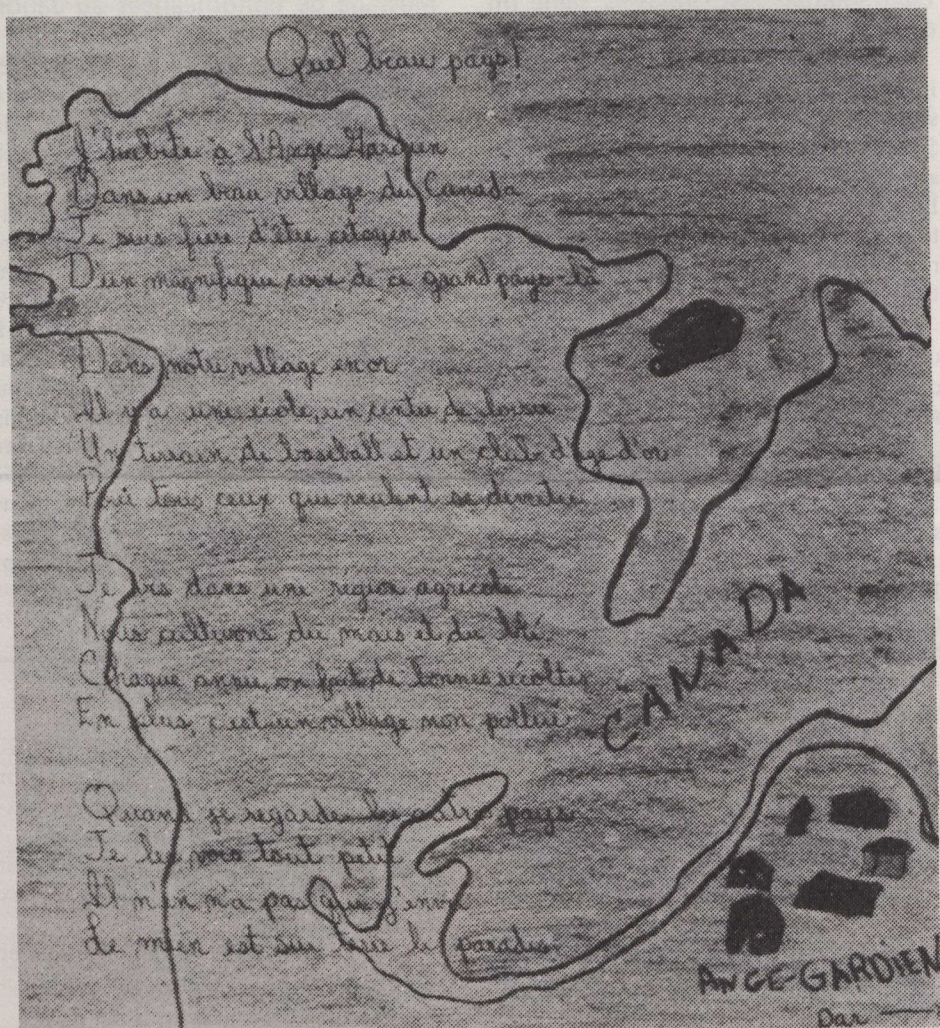 Quel beau pays!
J'habite à l'Ange Gardien
Dans un beau village du Canada
Je suis fière d'être citoyen
D'un magnifique coin de ce grand pays-là
Dans notre village en or
Il y a une école, un centre de loisir
Un terrain de baseball et un club d'âge d'or
tous ceux que veulent se
Je vis dans une région agricole
Nous cultivons du maïs et du blé
Chaque année, on fait de bonnes récoltes
En plus, c'est un village non pollué
Quand je regarde les autre pays
Je les vois tout petit
Il n'en n'a pas que j'envie
Le mien est sur terre le paradis
CANADA
ANGE-GARDIEN
Par